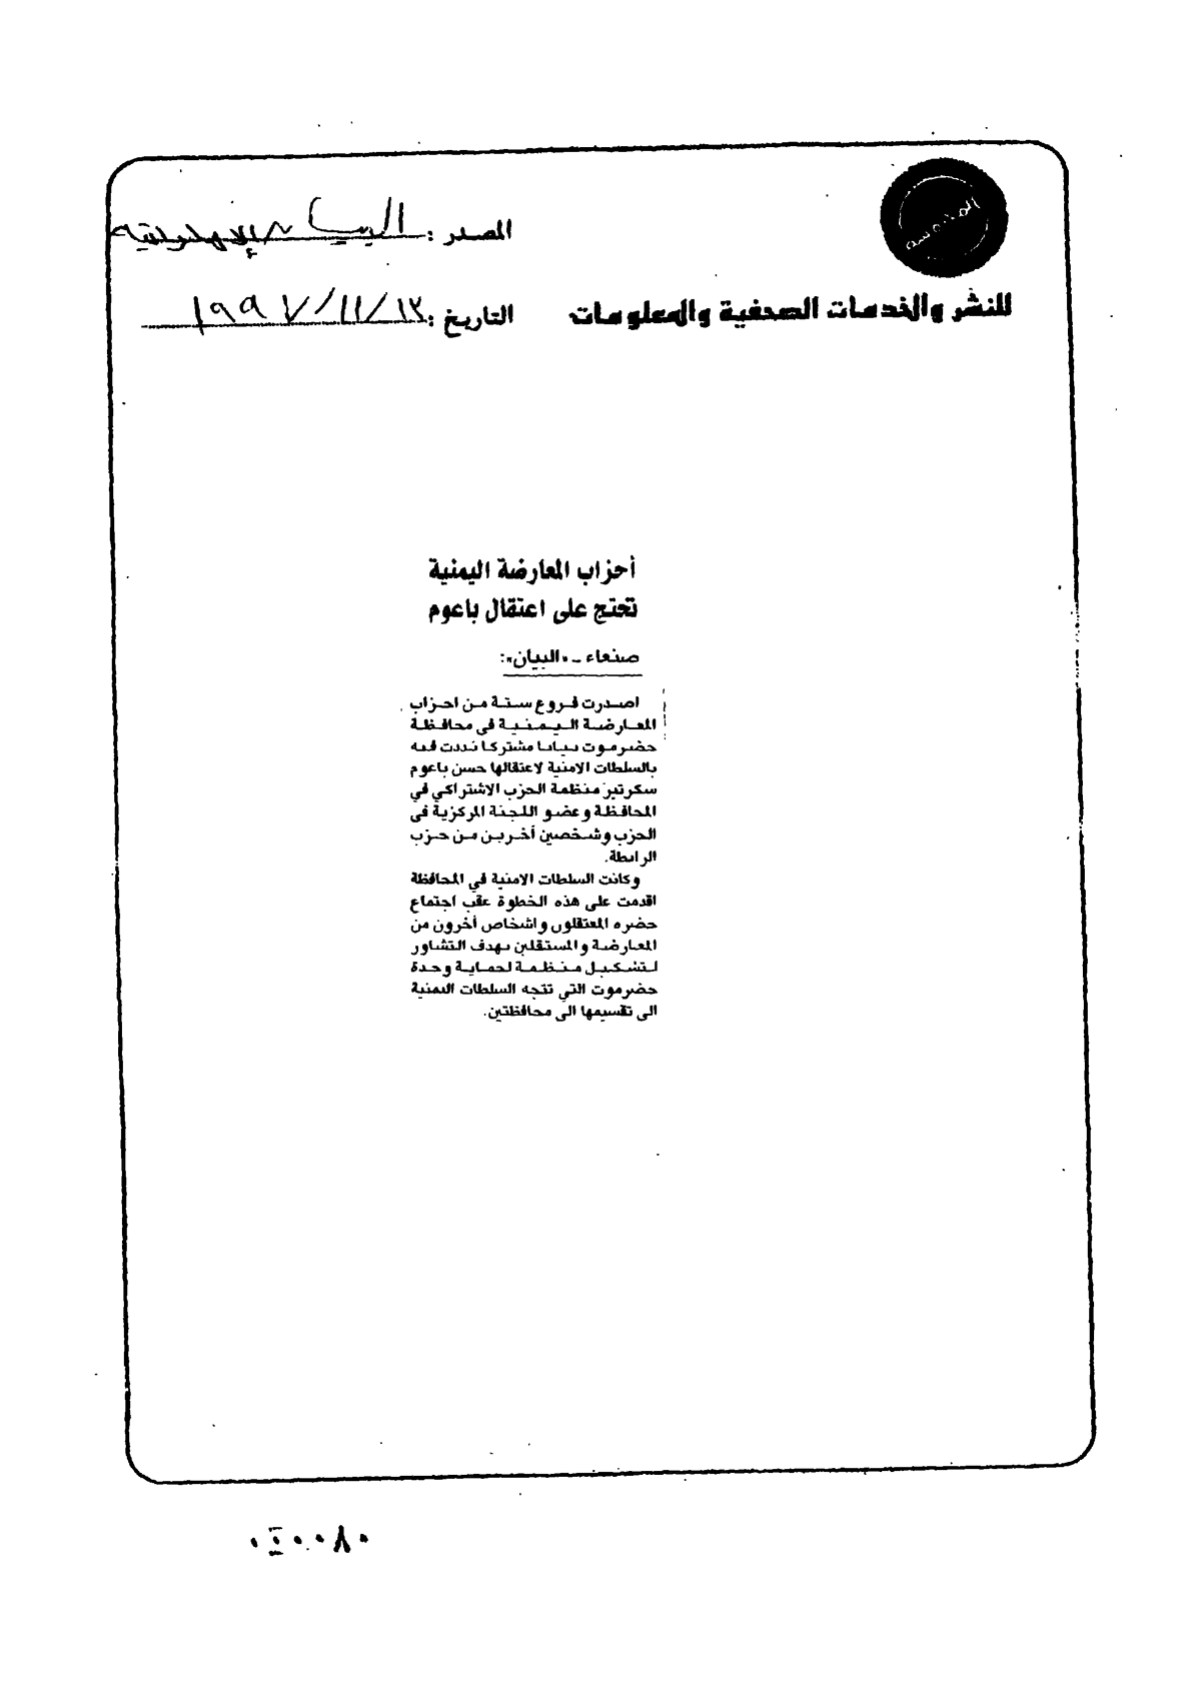 المصدر : البيان الإماراتية
للنشر والخدمات الصحفية والمعلومات
التاريخ : ١٣/١١/١٩٩٧
أحزاب المعارضة اليمنية
تحتج على اعتقال باعوم
صنعاء - «البيان»:
اصدرت فروع ستة من احزاب
المعارضة اليمنية في محافظة
حضرموت بيانا مشتركا نددت فيه
بالسلطات الامنية لاعتقالها حسن باعوم
سكرتير منظمة الحزب الاشتراكي في
المحافظة وعضو اللجنة المركزية في
الحزب وشخصين أخرين من حزب
الرابطة.
وكانت السلطات الامنية في المحافظة
اقدمت على هذه الخطوة عقب اجتماع
حضره المعتقلون واشخاص أخرون من
المعارضة والمستقلين بهدف التشاور
لتشكيل منظمة لحماية وحدة
حضرموت التي تتجه السلطات اليمنية
الى تقسيمها الى محافظتين.